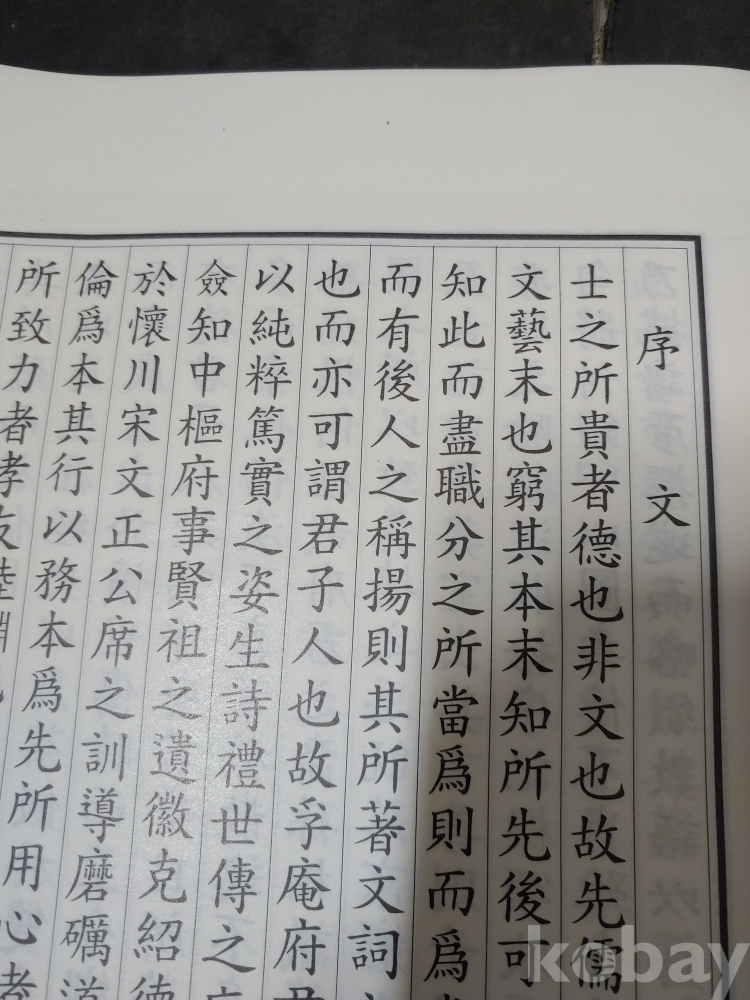 序文
士之所貴者德也非文也故先儒
文藝末也窮其本末知所先後可
知此而盡職分之所當爲則而爲
而有後人之稱揚則其所著文詞
也而亦可謂君子人也故孚庵府君
以純粹篤實之姿生詩禮世傳之
僉知中樞府事賢祖之遺徽克紹德
於懷川宋文正公席之訓導磨礪道
倫爲本其行以務本爲先所用心者
所致力者孝友睦
kobay